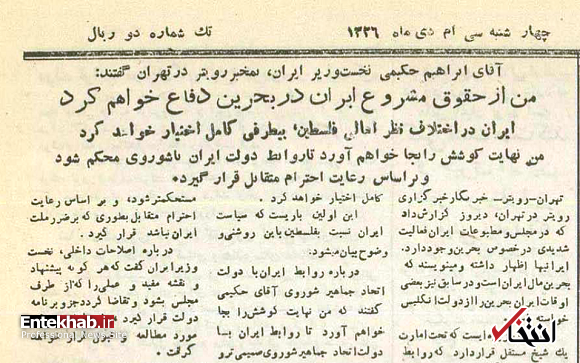 چهارشنبه سی ام دی ماه ۱۳۲۶
تك شماره دو ریال
آقای ابراهیم حکیمی نخست‌وزیر ایران، بمخبر رویتر در تهران گفتند:
من از حقوق مشروع ایران در بحرین دفاع خواهم کرد
ایران در اختلاف نظر اهالی فلسطین بیطرفی کامل اختیار خواهد کرد
من نهایت کوشش را بجا خواهم آورد تا روابط دولت ایران با شوروی محکم شود
و بر اساس رعایت احترام متقابل قرار گیرد.
تهران-رویتر- خبرنگار خبرگزاری
رویتر در تهران، دیروز گزارش داد
که در مجلس و مطبوعات ایران فعالیت
شدیدی در خصوص بحرین وجود دارد.
ایرانیها اظهار داشته و مینویسند که
بحرین مال ایران است و در سابق نیز بعضی
اوقات ایران بحرین را از دولت انگلیس
خواسته
است که تحت امارت
یك شیخ مستقل قرار دارد که روابط
کامل اختیار خواهد کرد.
این اولین باریست که سیاست
ایران نسبت بفلسطین باین روشنی و
وضوح بیان میشود.
در باره روابط ایران با دولت
اتحاد جماهیر شوروی آقای حکیمی
گفتند که من نهایت کوشش را بجا
خواهم آورد تا روابط ایران با
دولت اتحاد جماهیر شوروی صمیمی تر و
مستحکمتر شود، و بر اساس رعایت
احترام متقابل بطوری که بر ضرر ملت
ایران نباشد قرار گیرد.
در باره اصلاحات داخلی، نخست
وزیر ایران گفت که هر گونه پیشنهاد
و نقشه مفید و عملی را که از طرف
مجلس بشود و تقاضا گردد جزو برنامه
دولت قرار گیرد
مورد مطالعه
گرفت.
Entekhab.ir
Professional News Site
انتخاب